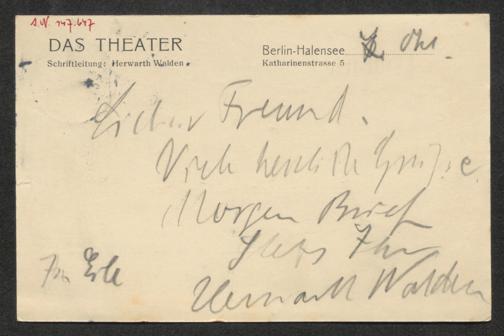 J.N. 147.647
DAS THEATER
Schriftleitung: Herwarth Walden
Berlin-Halensee
Katharinenstrasse 5
Lieber Freund.
Viele herzliche Grüße.
Morgen Brief
Stets Ihr
In Eile
Herwarth Walden